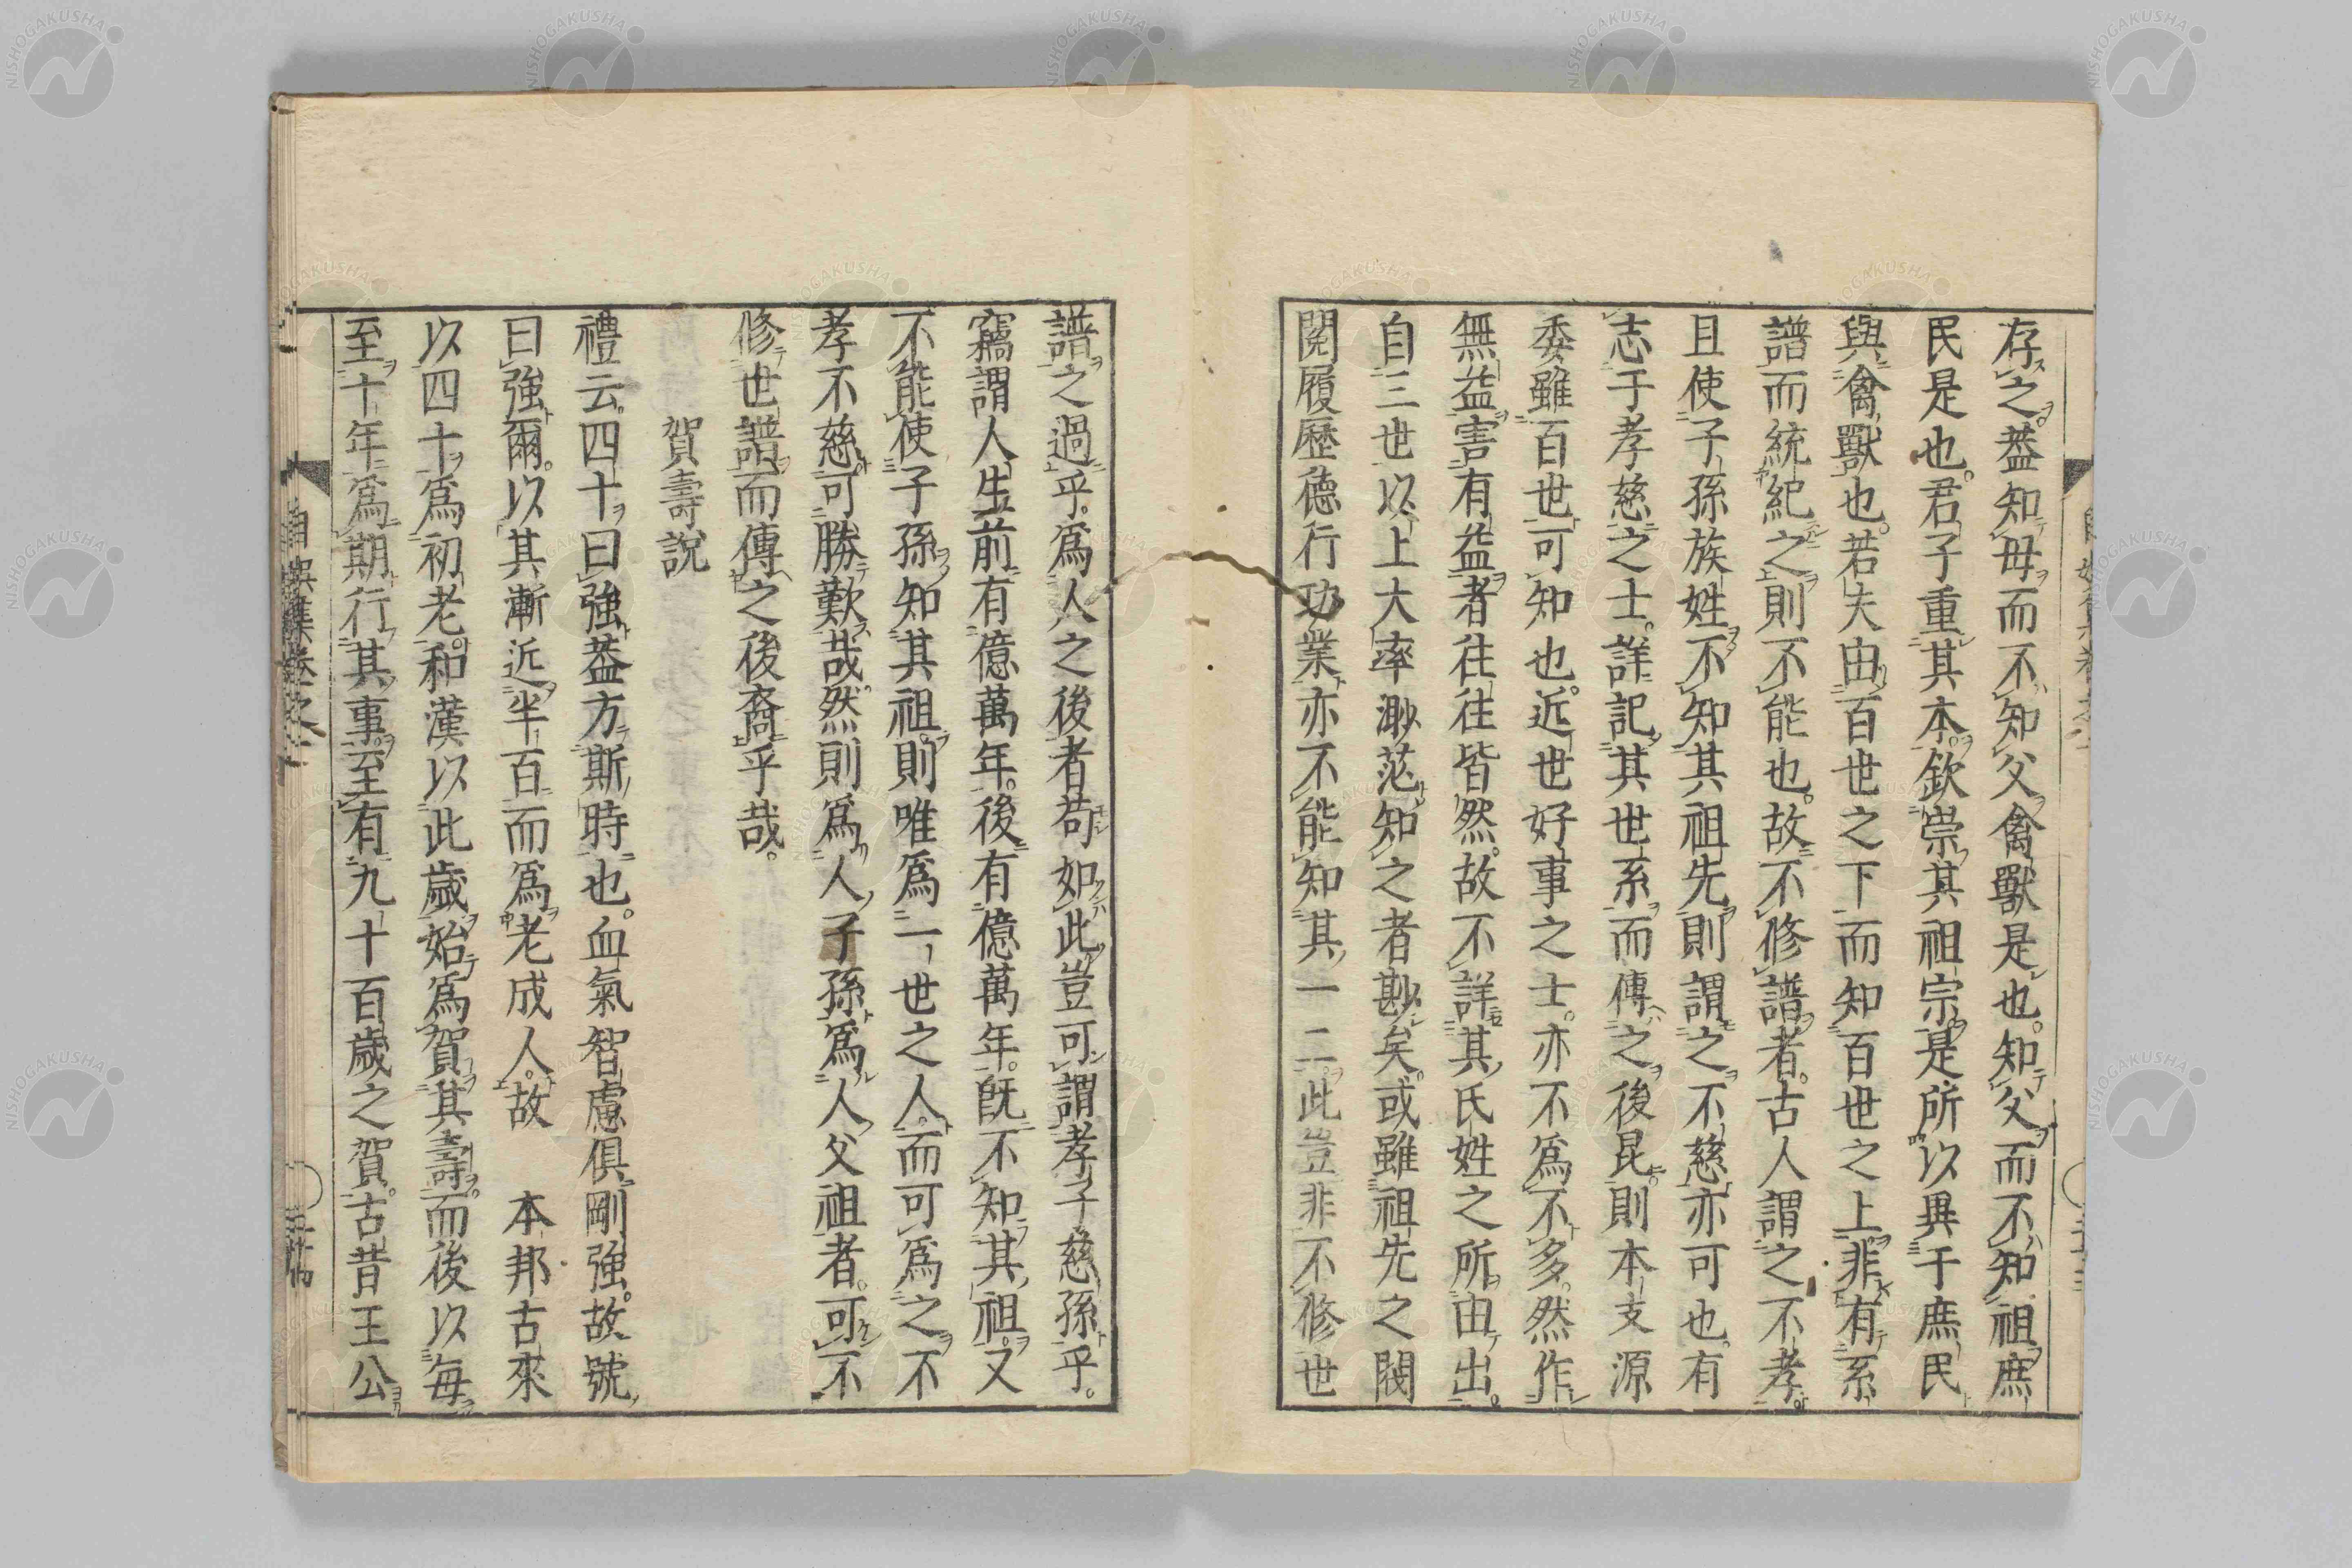 存之。蓋知母而不知父禽獸是也。知父而不知祖庶
民是也。君子重其本。欽崇其祖宗。是所以異于庶民
與禽獸也。若夫由百世之下而知百世之上。非有系
譜而統紀之。則不能也。故不修譜者。古人謂之不孝。
且使子孫族姓不知其祖先。則謂之不慈亦可也。有
志于孝慈之士。詳記其世系而傳之後昆。則本支源
委雖百世可知也。近世好事之士。亦不為不多。然作
無益害有益者往往皆然。故不詳其氏姓之所由出。
自三世以上大率渺茫知之者尠矣。或雖祖先之閥
閱履歷德行功業亦不能知其一二。此豈非不修世
譜之過乎。為人之後者苟如此。豈可謂孝子慈孫乎。
竊謂人生前有億萬年。後有億萬年。既不知其祖。又
不能使子孫知其祖。則唯為一世之人。而可為之不
孝不慈。可勝歎哉。然則為人子孫為人父祖者。可不
修世譜而傳之後裔乎哉。
賀壽說
禮云。四十曰強。蓋方斯時也。血氣智慮俱剛強。故號
曰強爾。以其漸近半百而為老成人。故 本邦古來
以四十為初老。和漢以此歲始為賀其壽。而後以每
至十年為期。行其事。至有九十百歲之賀。古昔王公